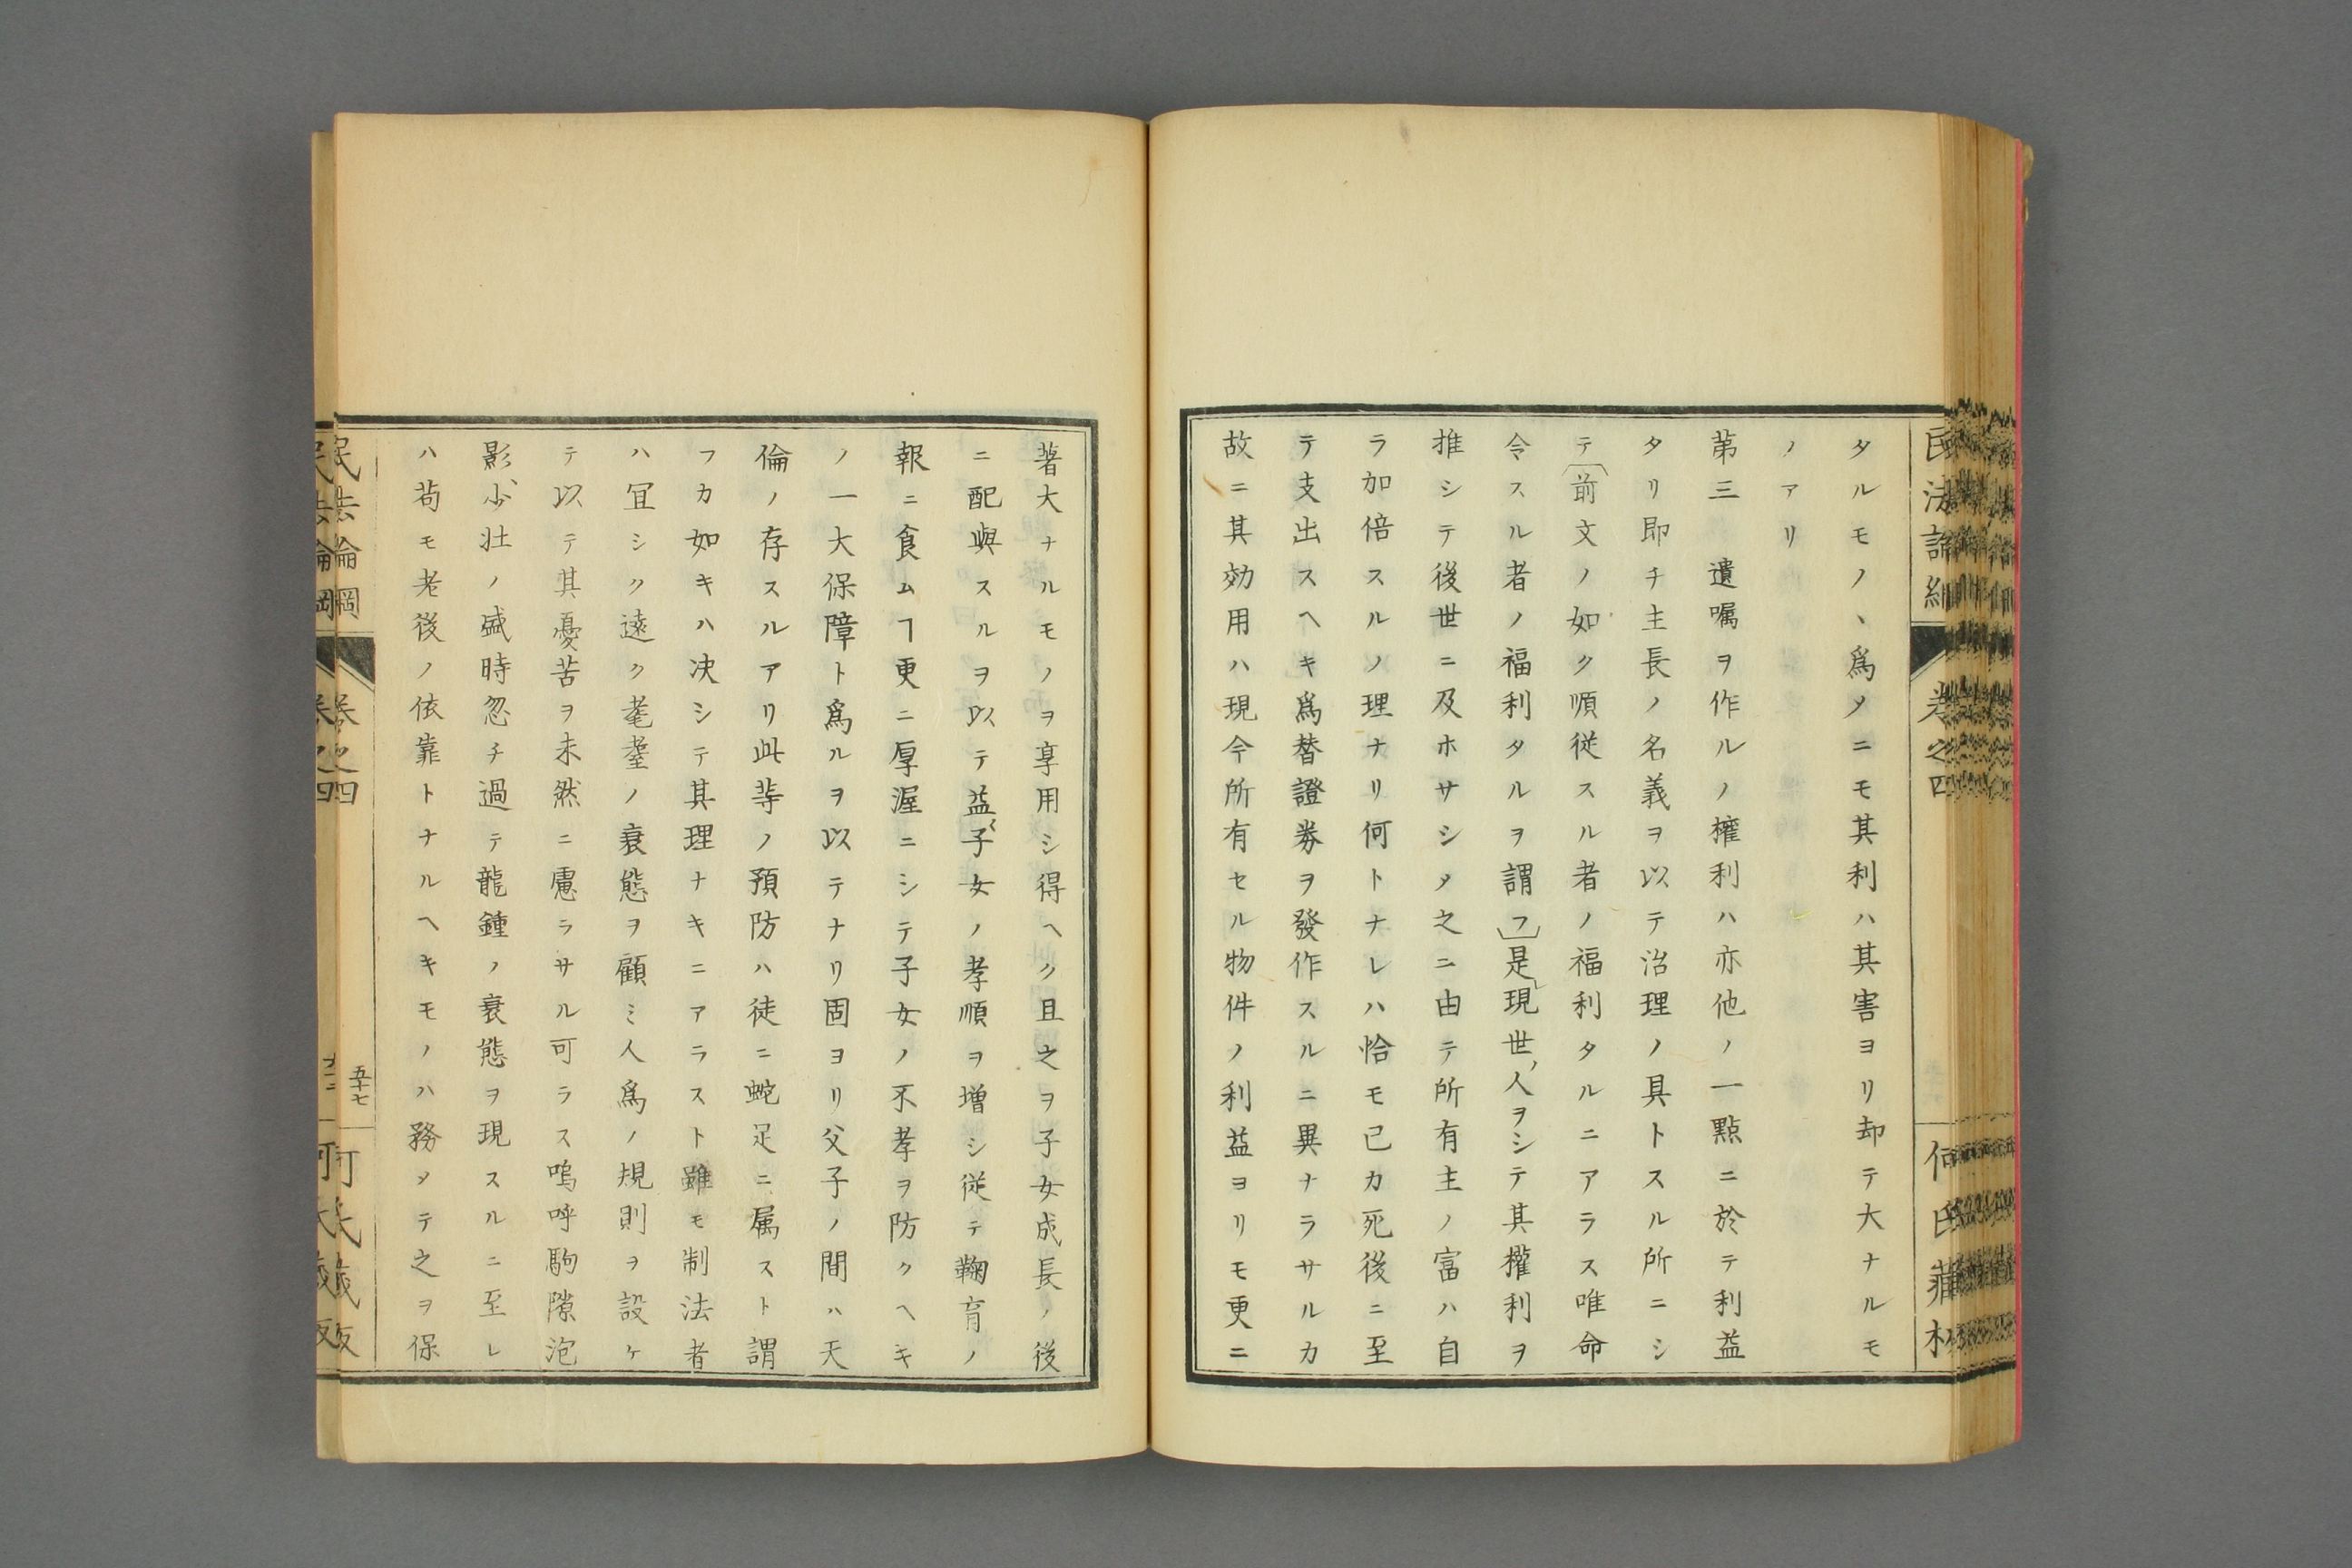 民法論綱
卷之四
何氏藏板
タルモノヽ爲メニモ其利ハ其害ヨリ却テ大ナルモ
ノアリ
第三 遺嘱ヲ作ルノ權利ハ亦他ノ一點ニ於テ利益
タリ即チ主長ノ名義ヲ以テ治理ノ具トスル所ニシ
テ〔前文ノ如ク順従スル者ノ福利タルニアラス唯命
令スル者ノ福利タルヲ謂フ〕是レ現世ノ人ヲシテ其權利ヲ
推シテ後世ニ及ホサシメ之ニ由テ所有主ノ富ハ自
ラ加倍スルノ理ナリ何トナレハ恰モ已カ死後ニ至
テ支出スヘキ爲替證券ヲ發作スルニ異ナラサルカ
故ニ其効用ハ現今所有セル物件ノ利益ヨリモ更ニ
著大ナルモノヲ享用シ得ヘク且之ヲ子女成長ノ後
ニ配與スルヲ以テ益〻子女ノ孝順ヲ増シ従テ鞠育ノ
報ニ食ムヿ更ニ厚渥ニシテ子女ノ不孝ヲ防クヘキ
ノ一大保障ト爲ルヲ以テナリ固ヨリ父子ノ間ハ天
倫ノ存スルアリ此等ノ預防ハ徒ニ蛇足ニ属スト謂
フカ如キハ决シテ其理ナキニアラスト雖モ制法者
ハ冝シク遠ク耄耋ノ衰態ヲ顧ミ人爲ノ規則ヲ設ケ
テ以テ其憂苦ヲ未然ニ慮ラサル可ラス嗚呼駒隙泡
影少壮ノ盛時忽チ過テ龍鍾ノ衰態ヲ現スルニ至レ
ハ苟モ老後ノ依靠トナルヘキモノハ務メテ之ヲ保
民法論綱
卷之四
五十七
何氏藏板